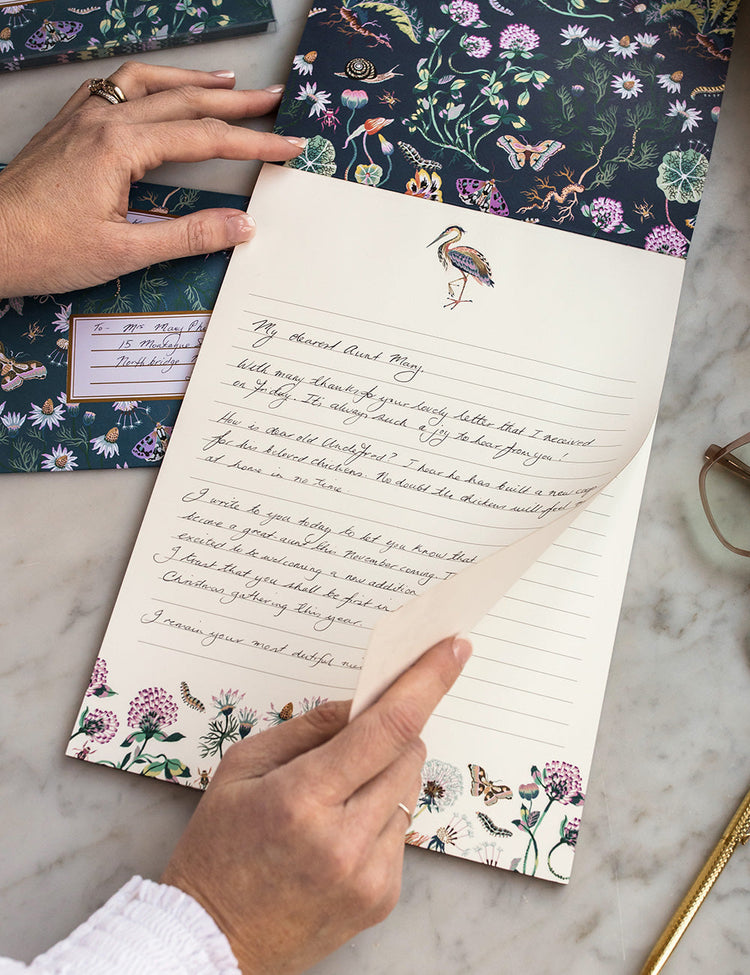 To - Mrs Mary
15 Montague
Northbridge
My dearest Aunt Mary,
With many thanks for your lovely letter that I received
on Friday. It's always such a joy to hear from you!
How is dear old Uncle Fred? I hear he has built a new
for his beloved chickens. No doubt the chickens will feel
at home in no time
I write to you today to let you know that
become a great aunt this November coming.
excited to be welcoming a new addition
I trust that you shall be first in
Christmas gathering this year.
I remain your most dutiful